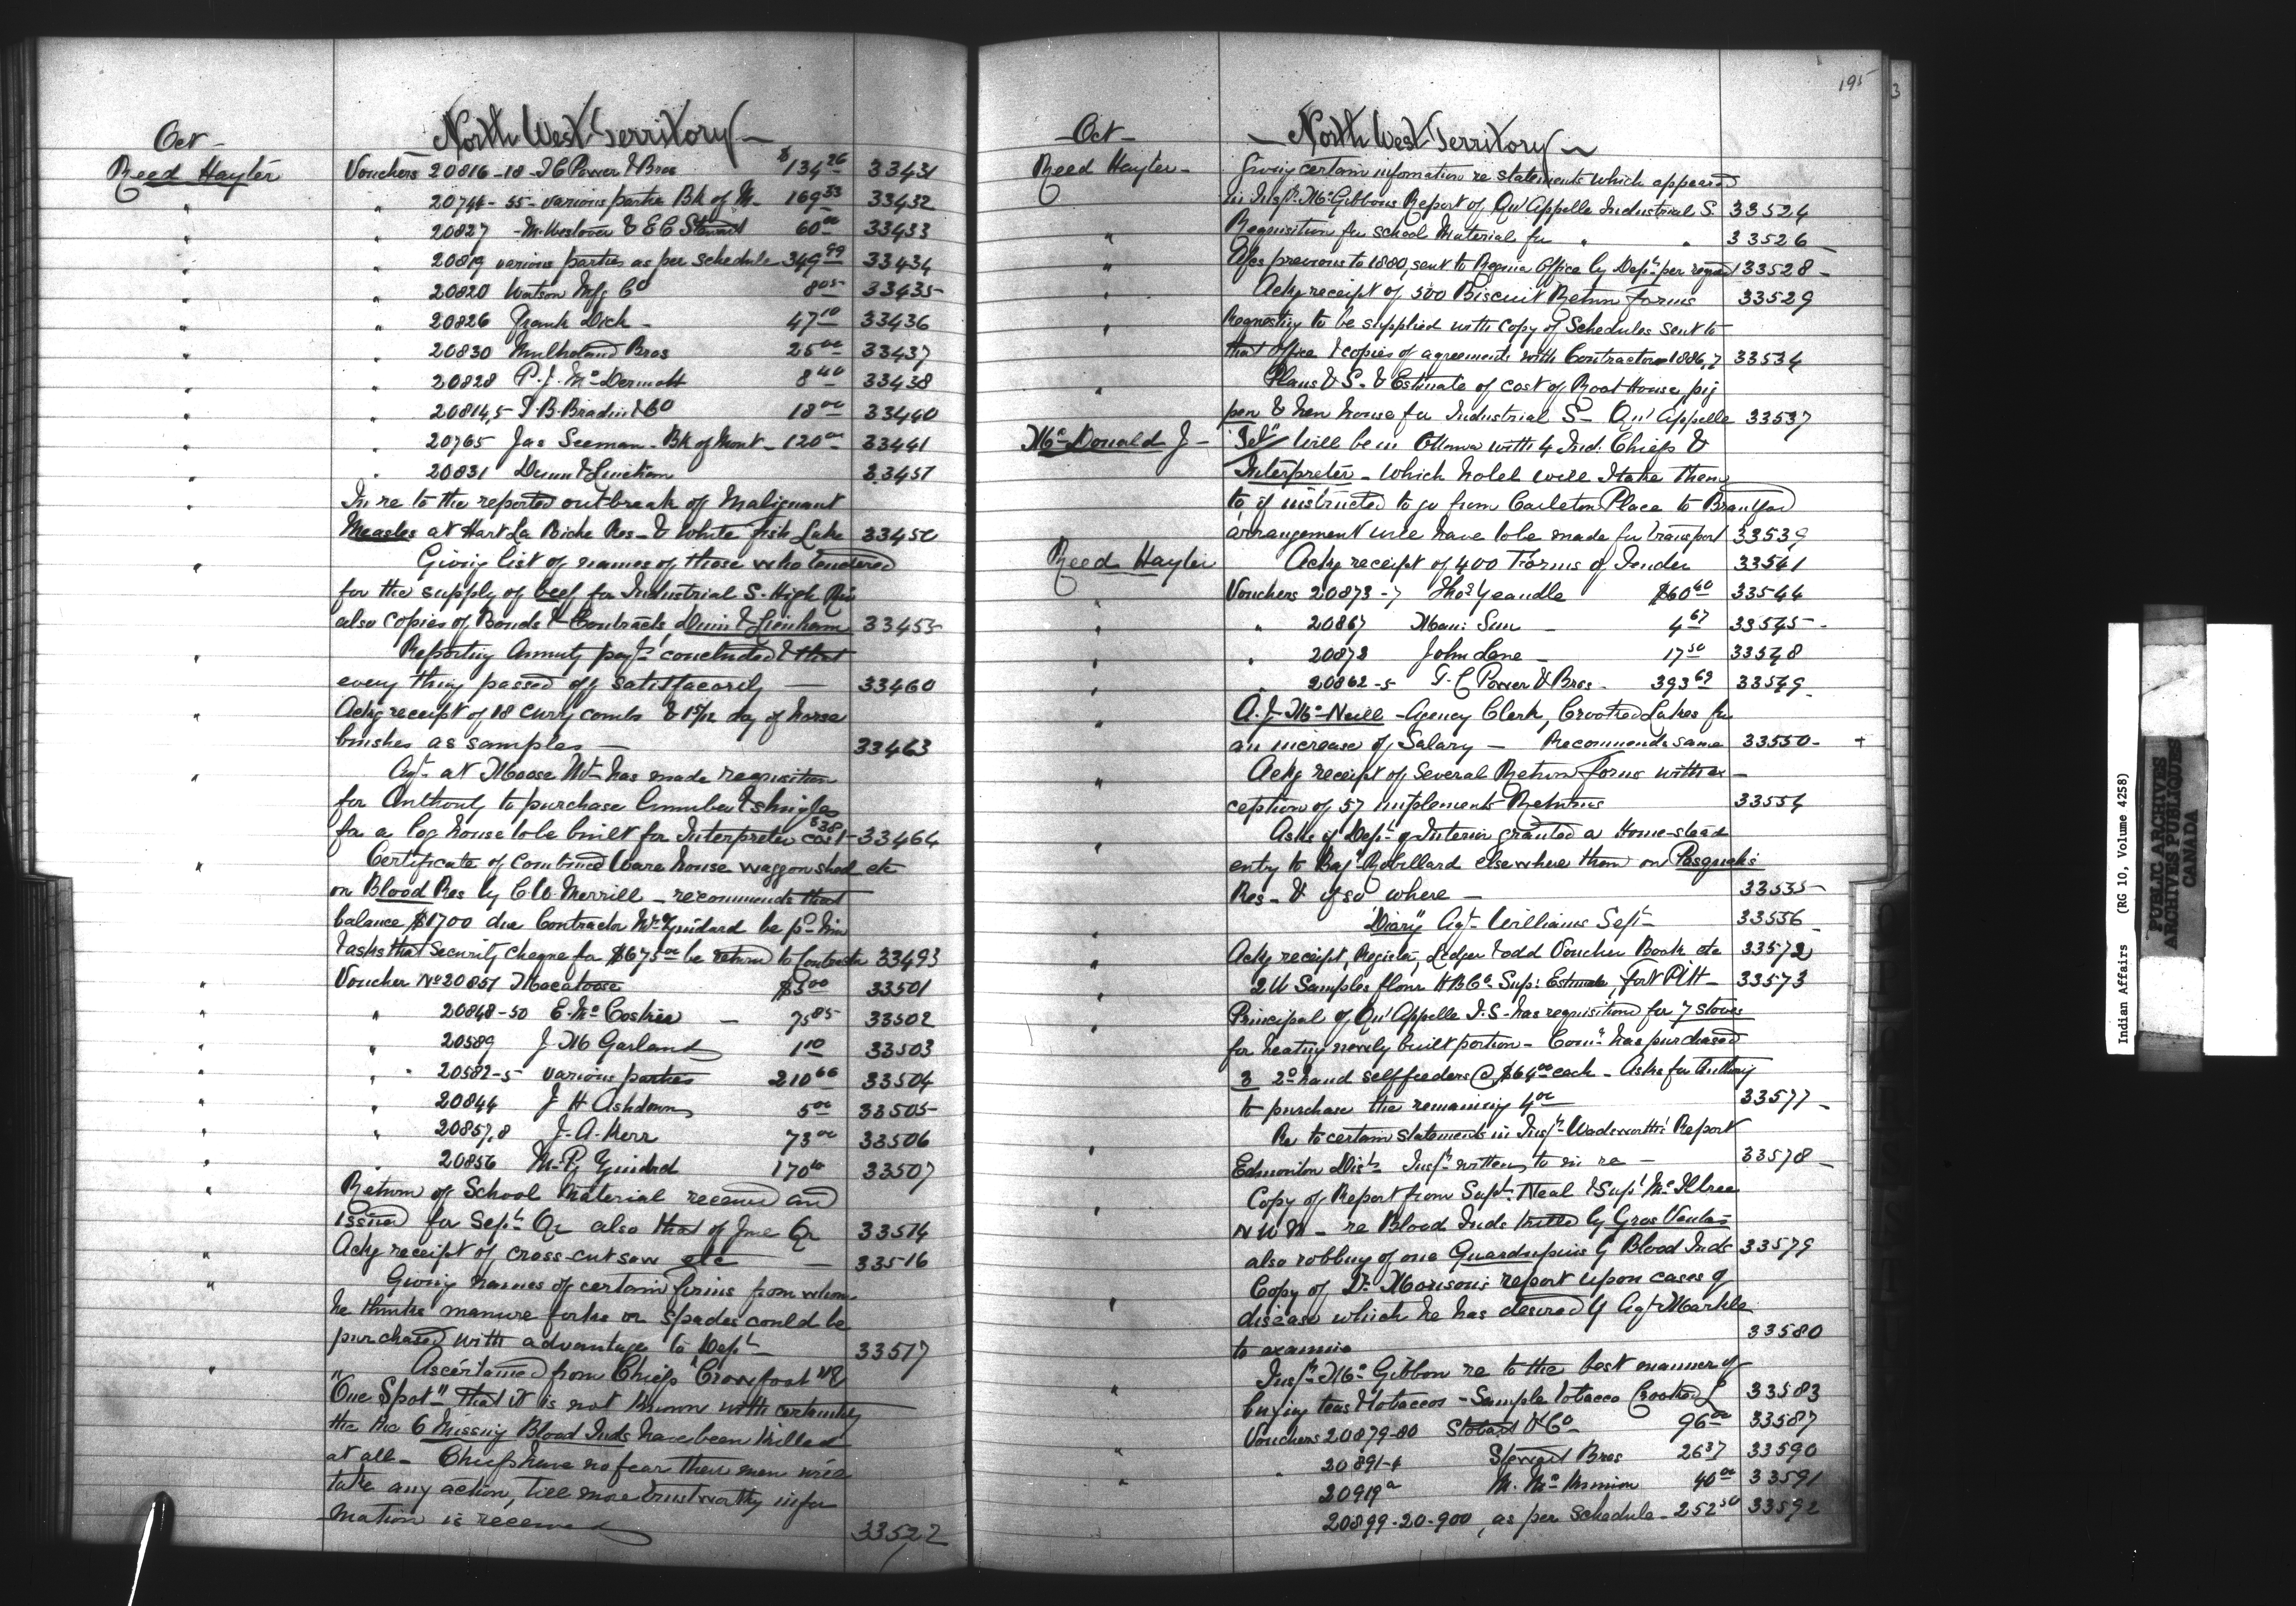 Oct -
North West Territory
Reed Hayter
Vouchers 20816-18 - T C Power & Bros $134 26 33431
" " 20746-55 - various parties Bk of M - 169 33 33432
" " 20827 - M. Weslover & E C Stewart 60 00 33433
" " 20819 various parties as per schedule 349 99 33434
" " 20820 Watson Mfg Co 8 05 33435
" " 20826 Frank Dick - 47 10 33436
" " 20830 Mulholand Bros 25 00 33437
" " 20828 P. J. McDermott 8 40 33438
" " 20814,5 - Co 18 00 33440
" " 20765 Jas Seeman - Bk of Mont - 120 00 33441
" " 20831 Dunn & 33451
" In re to the reported outbreak of Malignant
Measles at Hart La Biche Res - & White fish Lake
" Giving list of names of those who tendered
for the supply of beef for Industrial S. High
also copies of Bonds & Contracts, Dunn & 33455
" Reporting Annuity payts concluded & that
every thing passed off satisfacorily — 33460
" Ackg receipt of 18 curry combs & 1 5/12 doz of horse
brushes as samples — 33463
" Agt at Moose Mtn has made requisition
for Authority to purchase lumber & shingles
for a log house to be built for Interpreter cost $38 - 33464
" Certificate of combined Ware house waggon shed etc
on Blood Res by C W Merrill - recommends that
balance $1700 due Contractor be pd him
& asks that security cheque for $675 00 be return to Contractor 33493
" Voucher No 20851 $3 00 33501
" " 20848-50 E. McCoskrie - 75 85 33502
" " 20589 J M Garland 1 10 33503
" " 20582-5 various parties 210 66 33504
" " 20844 J H Ashdown 5 00 33505
" " 20857,8 J. A. Kerr 73 00 33506
" " 20856 170 10 33507
" Return of School Material received and
issued for Sept Qr also that of June Qr 33514
" Ackg receipt of cross-cut saw etc — 33516
" Giving names of certain firms from whom
he thinks manure forks or spades could be
purchased with advantage to Dept - 33517
" Ascertained from Chiefs "Crowfoot" &
"One Spot" that it is not known with certainty
the the 6 Missing Blood Inds have been killed
at all - Chiefs have no fear their men will
take any action, till more trustworthy infor
mation is received 33522
195
3
- Oct -
- North West Territory -
Reed Hayter - Giving certain information re statements which appeared
in Inspr McGibbons Report of Qu'Appelle Industrial S. 33524
" Requisition for school Material for " " 33526
" previous to 1880, sent to Regina Office by Dept per 133528 -
" Ackg receipt of 500 Biscuit Return forms 33529
" Requesting to be supplied with copy of Schedules sent to
that office & copies of agreements with Contractors 1886,7 33534
" Plans & S. & Estimate of cost of Boat House, pig
pen & hen house for Industrial S - Qu'Appelle 33537
McDonald J - "Tel" Will be in Ottawa with 4 Ind. Chiefs &
Interpreter - Which hotel will I take them
to, if instructed to go from Carleton Place to Brantford
arrangement will have to be made for transport 33539
Reed Hayter Ackg receipt of 400 Forms of Tender 33541
" Vouchers 20873-7 Thos Yeandle $60 40 33544
" " 20867 Man: Sun - 4 67 33545 -
" " 20872 John Lane - 17 50 33548
" " 20862-5 T. C Power & Bros - 393 69 33549
" A. J. McNeill - Agency Clerk, Crooked Lakes for
an increase of Salary - Recommends same 33550 - +
" Ackg receipt of several Return forms with ex -
ception of 57 implements Returns 33554
" Asks if Dept of Interior granted a Home-stead
entry to Bapt Robillard elsewhere than on Pasquah's
Res - & if so where - 33535
" "Diary" Agt Williams Sept - 33556
" Ackg receipt, Register, Ledger & odd Voucher Book etc 33572
" 2 Samples flour H B Co Sup: Estimate, Fort Pitt - 33573
" Principal of Qu'Appelle I. S - has requisitioned for 7 stoves
for heating newly built portion - Comr has purchased
3 2nd hand self feeders @ $64 00 each - Asks for Authority
to purchase the remaining 4 33577 -
" Re to certain statements in Inspr Wadsworth's Report
Edmonton Dist - Inspr written to in re - 33578 -
" Copy of Report from Supt Neal & Supt McIllree
N W M - re Blood Inds killed by Gros Ventres
also robbing of one by Blood Inds 33579
" Copy of Dr report upon cases of
disease which he has desired by Agt Markle
to examine 33580
" Inspr McGibbon re to the best manner of
buying teas & tobaccos - Sample tobacco Crooked L 33583
Vouchers 20879-80 Stobart & Co - 96 00 33587
" " 20891-4 Stewart Bros 26 37 33590
" 20919a 40 00 33591
20899-20-900, as per schedule - 252 50 33592
Indian Affairs (RG 10, Volume 4258)
PUBLIC ARCHIVES
ARCHIVES PUBLIQUES
CANADA